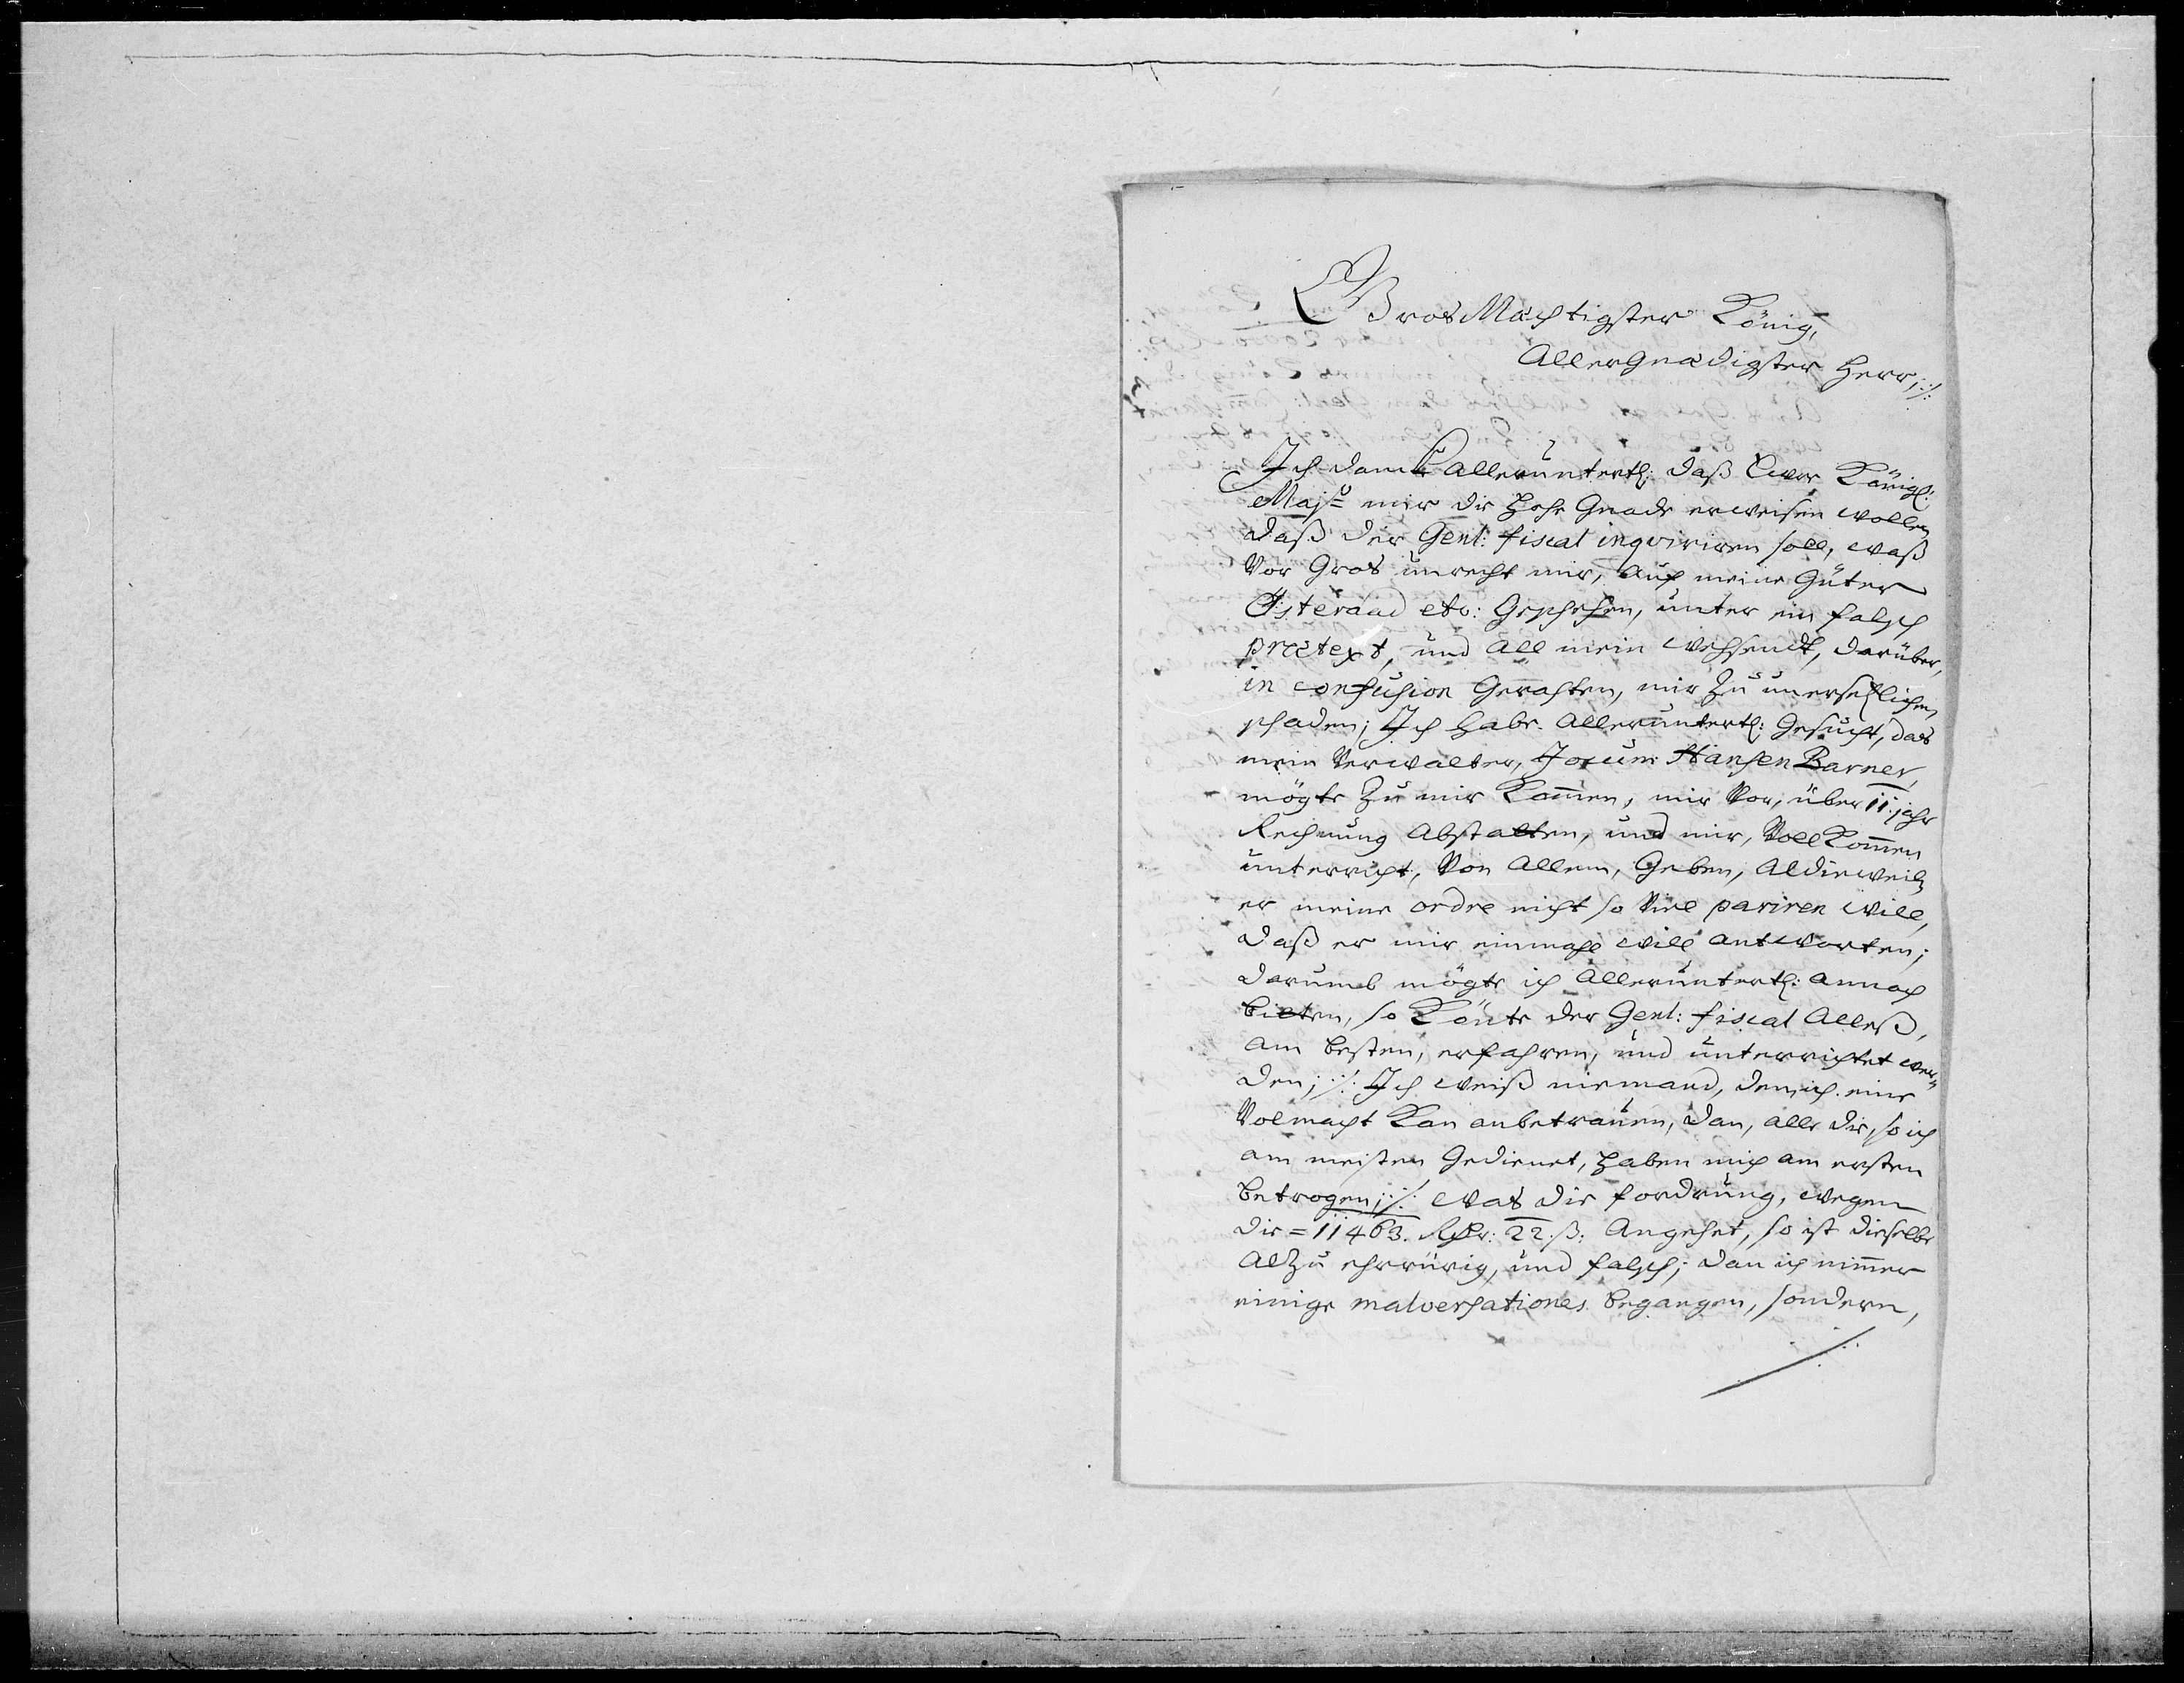 GrosMächtigster König,
Allergnädigster Herr,;/:
Ich danck allerunterth: daß Ewer Königl:
Majt: mir die Hohe Gnade erweisen wollen,
daß der Genl: fiscal inqviriren soll, waß
Vor Gros unrecht mir, auf meine Güter
Österaad etc: Geschehen, unter ein falsch
prætext, und all mein wehsendt, darüber,
in confusion Gerahten, mir zu unersetzlichen
schaden; Ich habe Allerunterth: Gesucht, das
mein Verwalter, Jocum Hansen Barner,
mögte zu mir Kommen, mir Vor, über 11. jahr
Rechnung Abstatten, und mir, VollKommen
unterricht, Von Allem, Geben, Aldieweil,
er meine ordre nicht so Viel pariren will,
daß er mir einmahl will antworten;
darumb mögte ich Allerunterth: annoch
bitten, so Könte der Genl: fiscal Alleß,
am besten, erfahren, und unterrichtet wer„
den;:/: Ich weiß niemand, dem ich eine
Volmacht Kan anbetrauen, dan, alle die, so ich
am meisten Gedienet, haben mich am ersten
betrogen;:/: Was die fordrung, wegen
die = 11463. Rdr: 22. ß: Angehet, so ist dieselbe
Alzu ehrrürig, und falsch; dan ich nimmer
einige malversationes begangen, sondern,